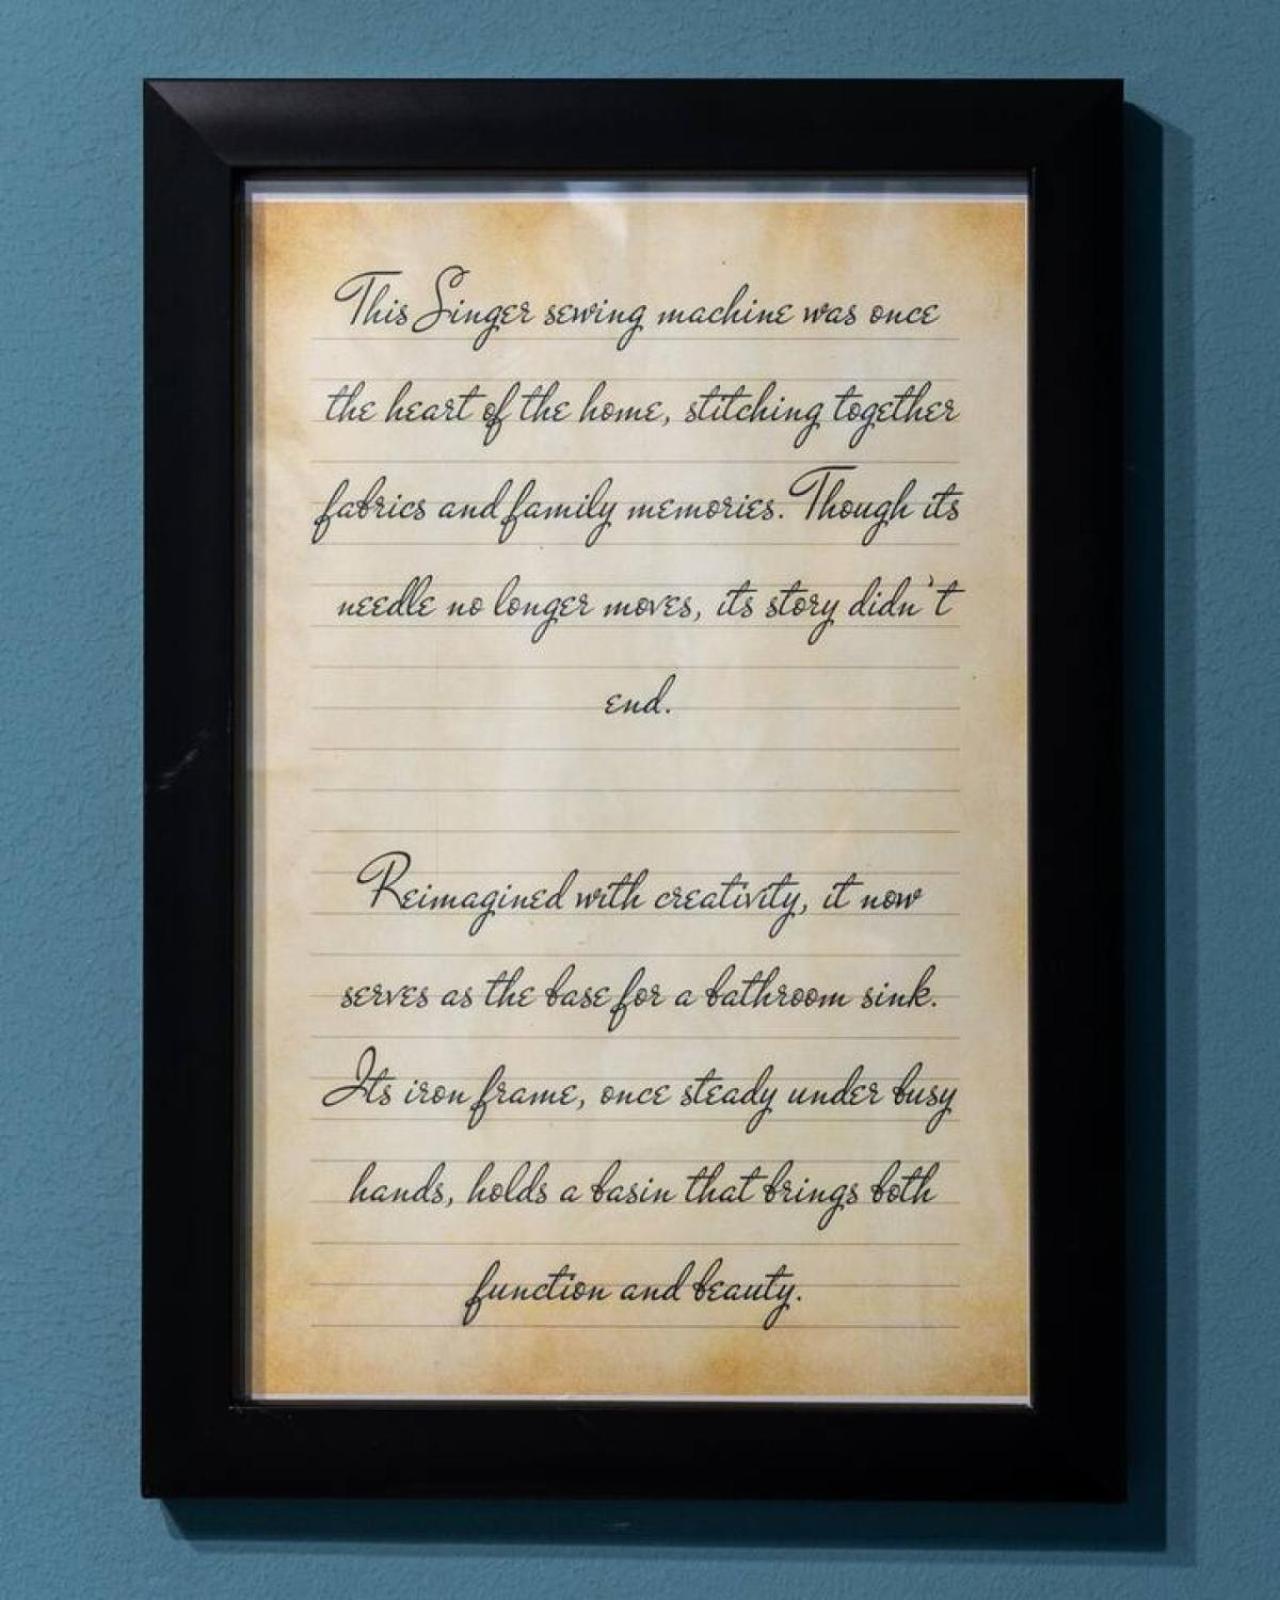 This Singer sewing machine was once
the heart of the home, stitching together
fabrics and family memories. Though its
needle no longer moves, its story didn't
end.
Reimagined with creativity, it now
serves as the base for a bathroom sink.
Its iron frame, once steady under busy
hands, holds a basin that brings both
function and beauty.